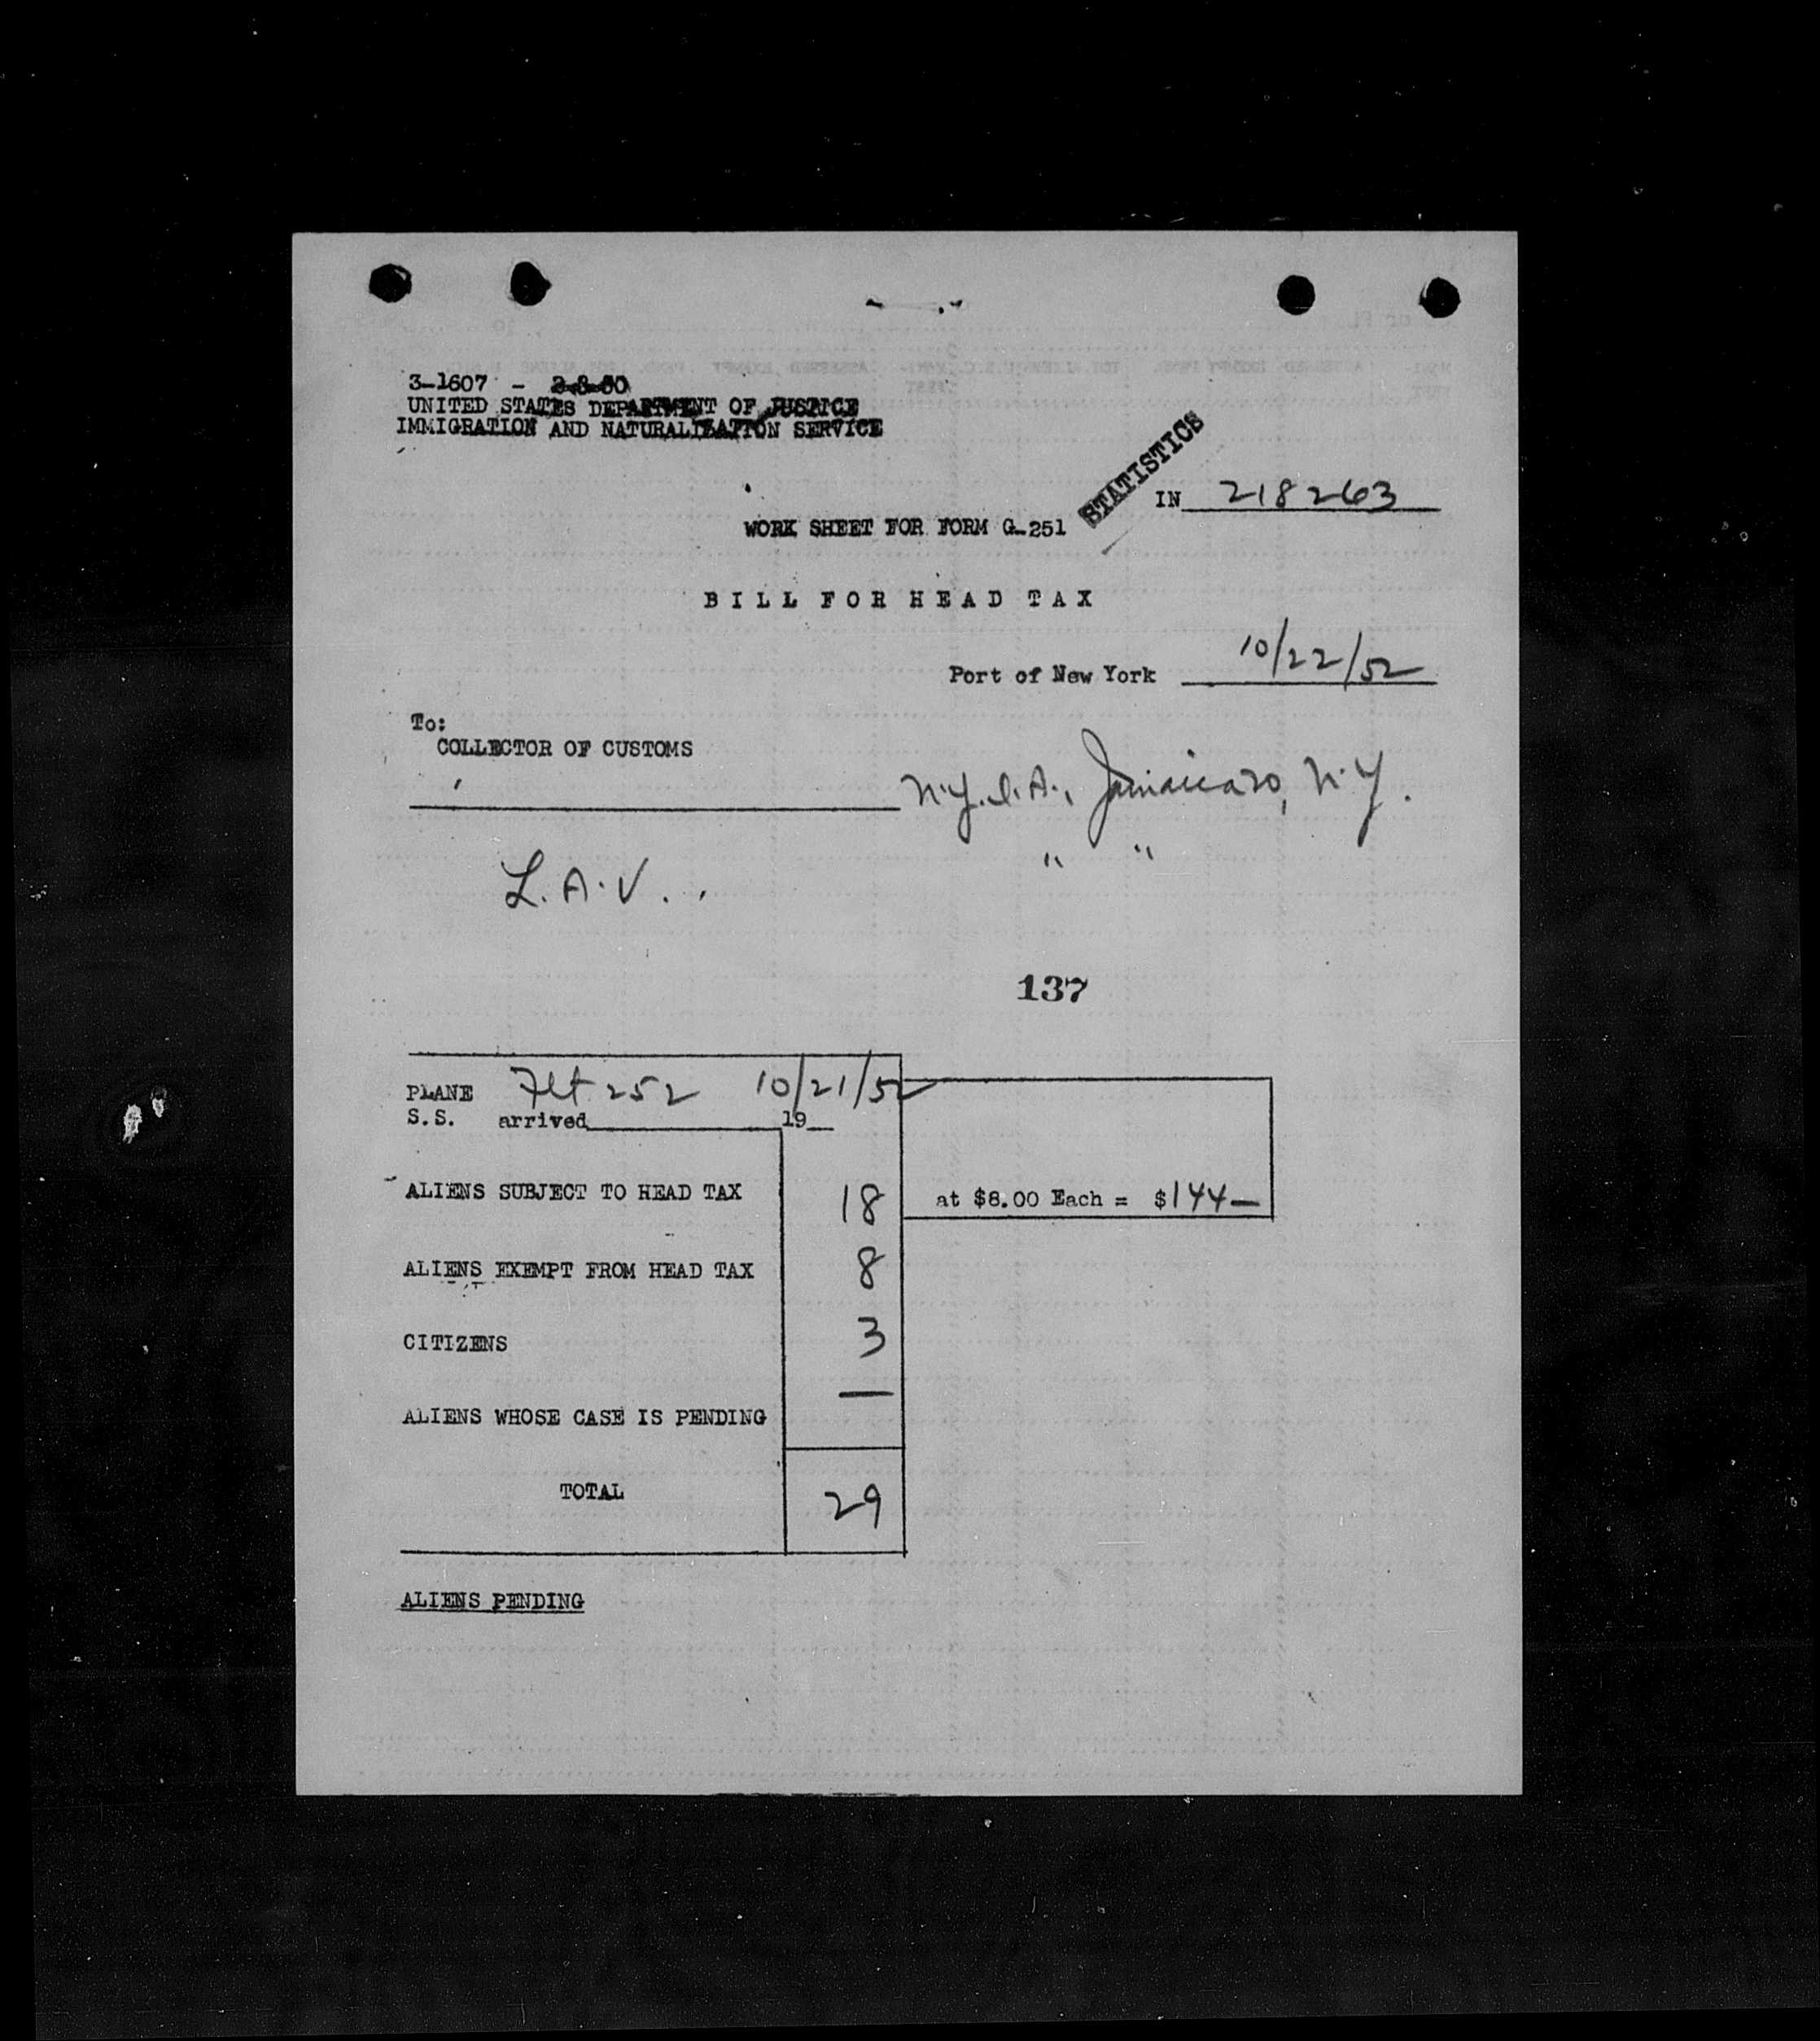 3-1607 - 2-8-50
UNITED STATES DEPARTMENT OF JUSTICE
IMMIGRATION AND NATURALIZATION SERVICE
STATISTICS
IN 218263
WORK SHEET FOR FORM G-251
BILL FOR HEAD TAX
Port of New York 10/22/52
To:
COLLECTOR OF CUSTOMS
N.Y.I.A., Jamaica 30, N.Y.
" "
L.A.V.
137
PLANE Flt 252 10/21/52
S.S. arrived 19
ALIENS SUBJECT TO HEAD TAX 18 at $8.00 Each = $144—
ALIENS EXEMPT FROM HEAD TAX 8
CITIZENS 3
ALIENS WHOSE CASE IS PENDING —
TOTAL 29
ALIENS PENDING